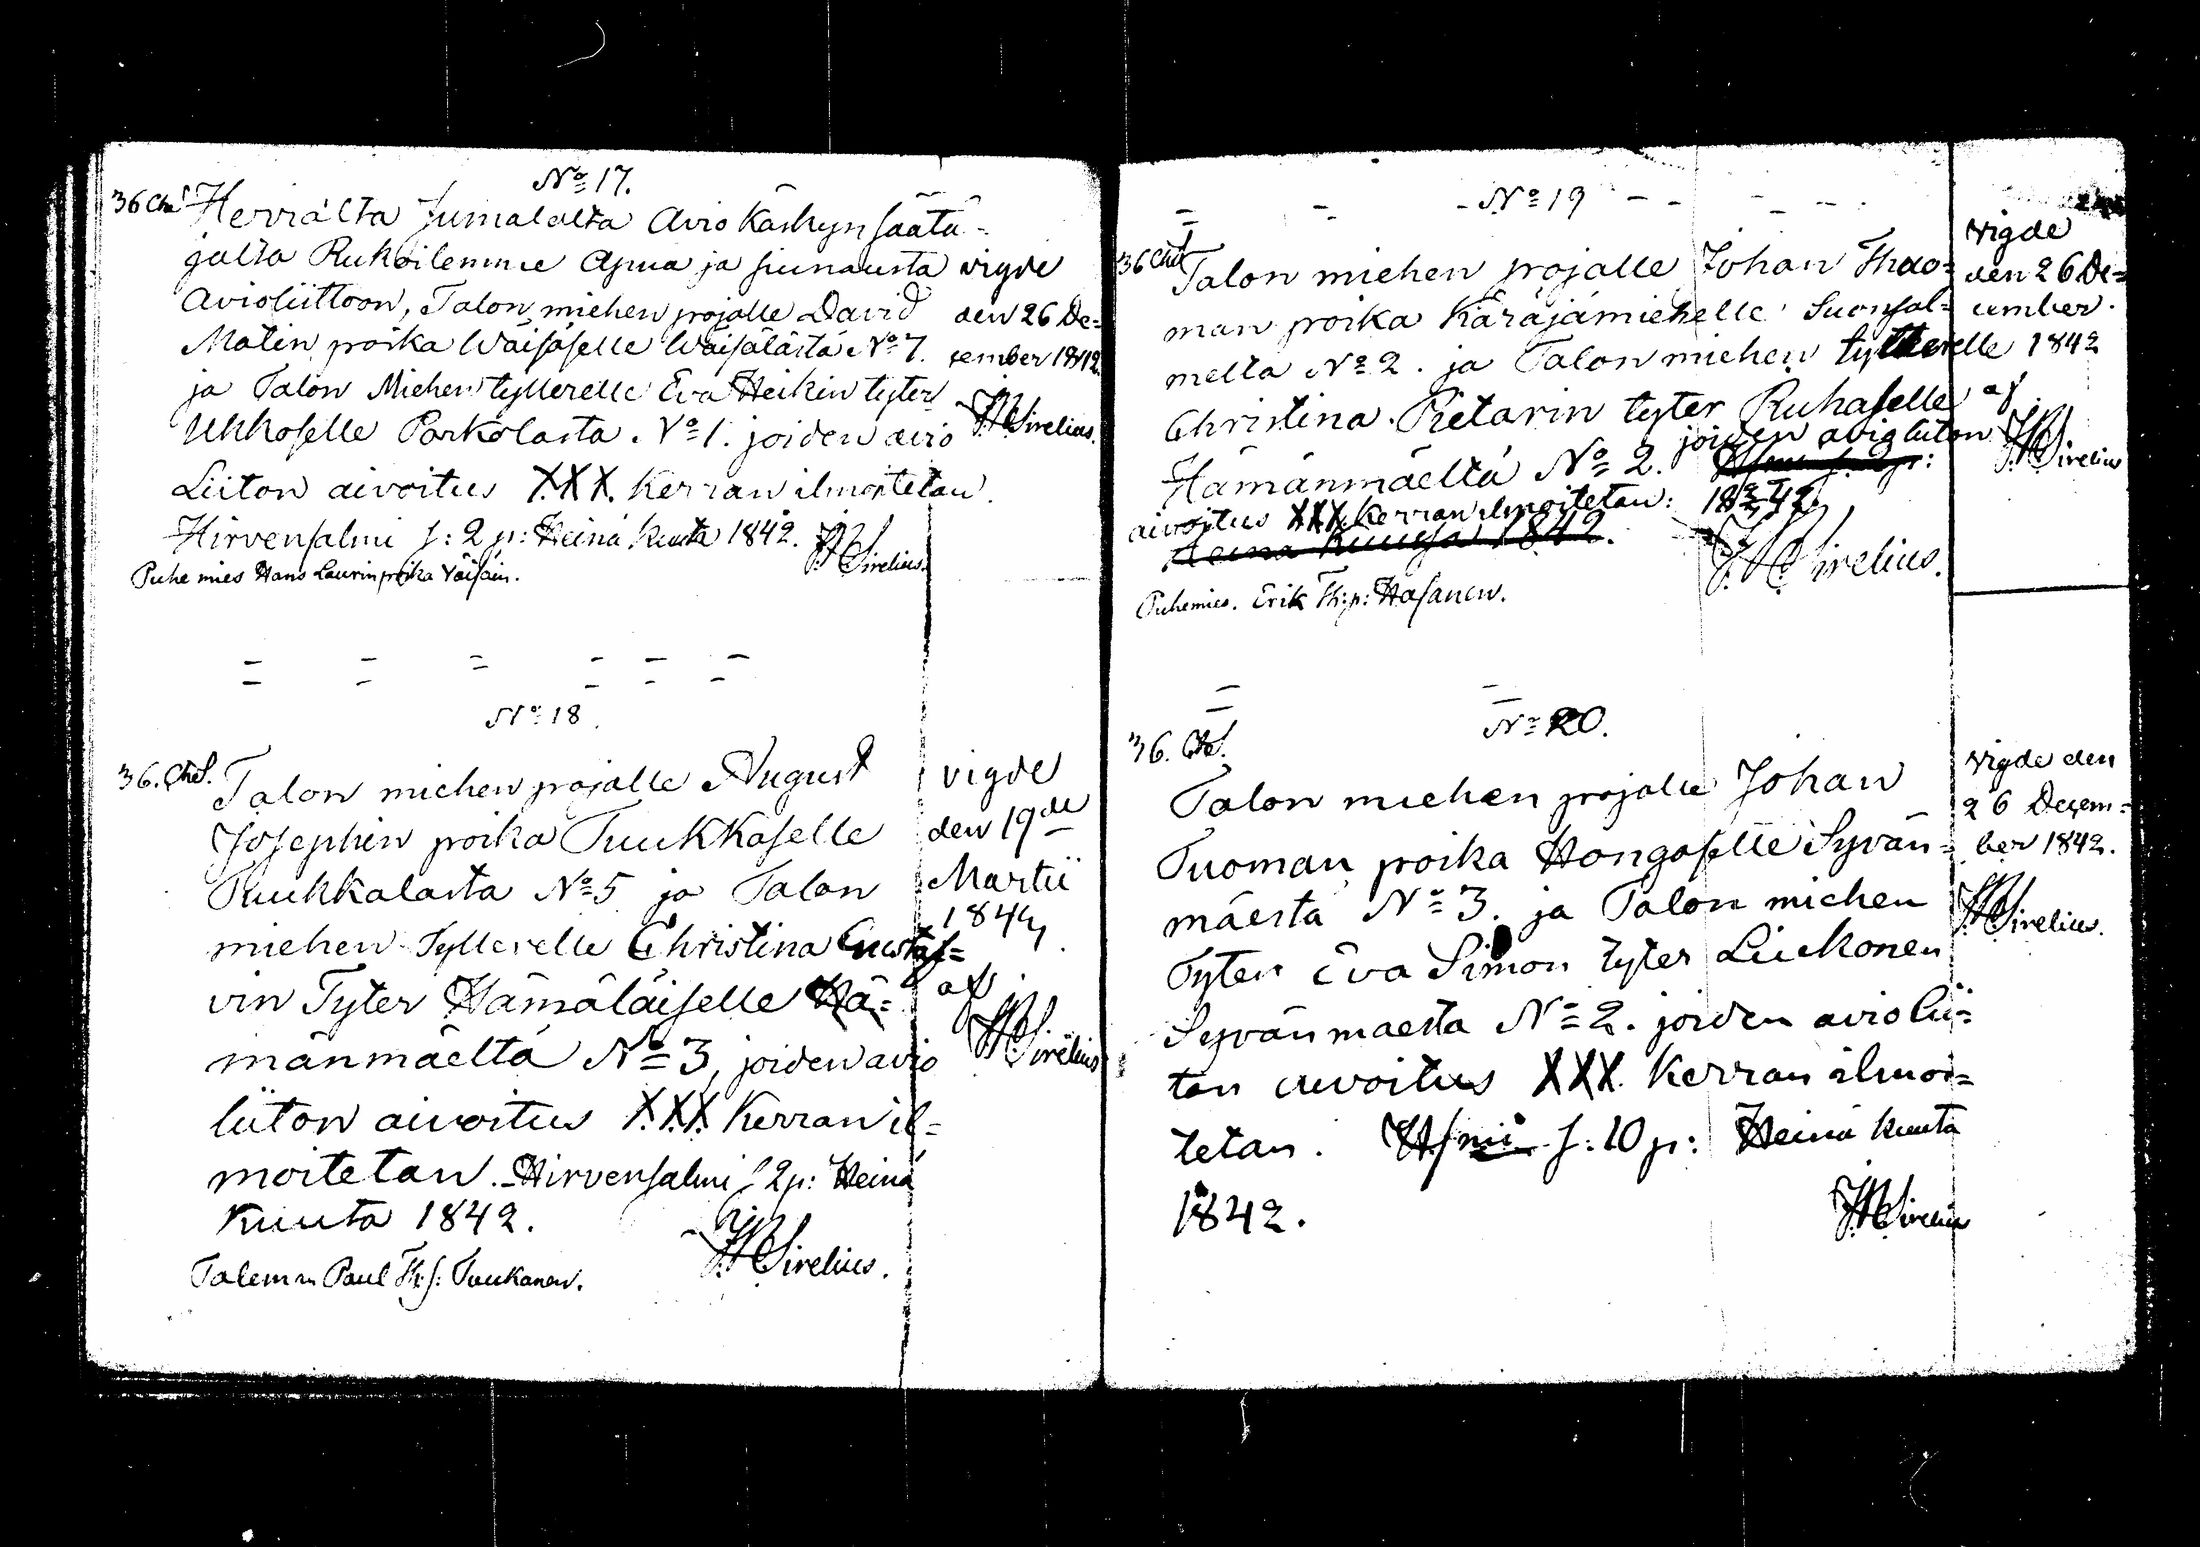 No 17.
36 Chs. Herralta Jumalalta Avio Käskyn säätä-
jältä Rukoilemme Apua ja siunausta
Avioliittoon, Talon miehen pojalle David
Matin poika Wäisäselle Wäisälästä No 7.
ja Talon Miehen tyllerelle Eva Heikin tyter
Ukkoselle Parkolasta No 1. joiden avio
Liiton aivoitus XXX. Kerran ilmoitetan.
Hirvensalmi s: 2 p: Heinä kuuta 1842. Sirelius.
Puhe mies Hans Laurin poika Väisäin.
vigde
den 26 De=
cember 1842.
Sirelius.
No 18.
36. Chs. Talon miehen pojalle August
Josephin poika Tuukkaselle
Tuukkalasta No 5 ja Talon
miehen Tyllerelle Christina Gustaf=
vin Tyter Hämäläiselle Hä=
mänmäeltä No 3, joiden avio
liiton aivoitus X.X.X. Kerran il=
moitetan. Hirvensalmi s 2 p: Heinä
Kuuta 1842.
Sirelius.
Talem m Paul Th: s: Tuukanen.
vigde
den 19de
Martii
1844
af
Sirelius
No 19
36 Chs. Talon miehen pojalle Johan Thao=
man poika Käräjämiehelle Suonsal=
melta No 2. ja Talon miehen tytterelle
Christina Pietarin tyter Ruhaselle
Hämänmäeltä No 2. joiden avioliiton
aivoitus XXX. Kerran ilmoitetan:
Heinä Kuussa 1842.
Sirelius.
Puhemies. Erik Th: p: Hasanen.
vigde
den 26 De=
cember.
1842
af
Sirelius
No 20.
36. Chs.
Talon miehen pojalle Johan
Tuoman poika Hongaselle Syvän=
mäesta No 3. ja Talon miehen
Tyten Eva Simon tyter Liekonen
Syvänmaesta No 2. joiden avio lii=
ton aivoitus XXX. Kerran ilmoi=
tetan. Hsmi s: 10 p: Heinä kuuta
1842.
Sirelius
Vigde den
26 Decem=
ber 1842.
Sirelius.